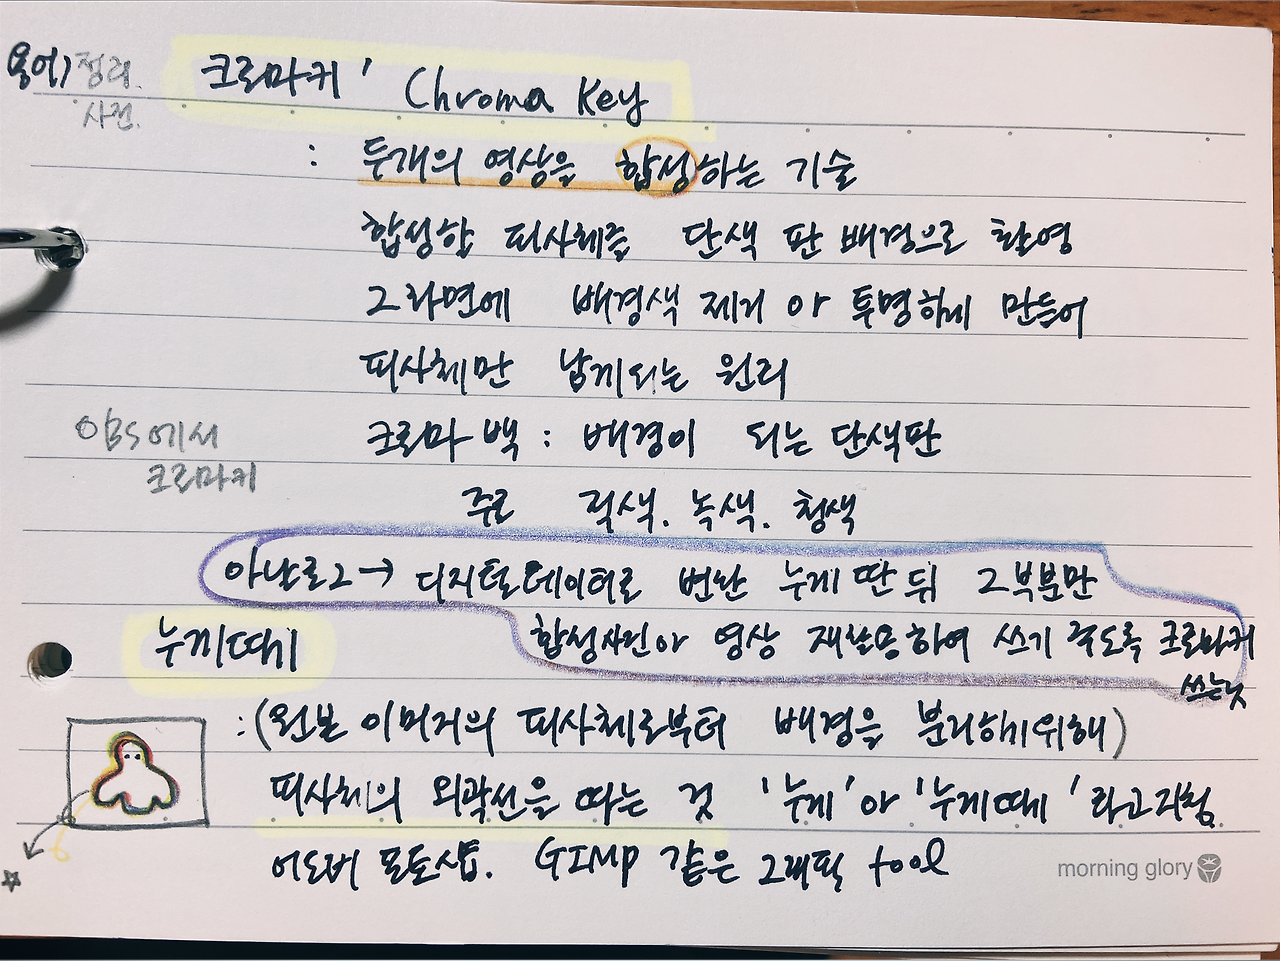 용어정리
사전.
크로마키' Chroma Key
: 두개의 영상을 합성하는 기술
합성할 피사체를 단색 판 배경으로 촬영
그 화면에 배경색 제거 아 투명하게 만들어
피사체만 남게되는 원리
OBS에서
크로마키
크로마 백 : 배경이 되는 단색판
주로 적색. 녹색. 청색
아날로그 → 디지털데이터로 변환 누게 딴 뒤 그부분만
합성사진아 영상 재활용하여 쓰기 좋도록 크로마키
쓰는것
누끼따기
: (원본 이미지의 피사체로부터 배경을 분리하기위해)
피사체의 외곽선을 따는 것 '누게'아 '누게따게'라고지칭.
어도비 포토샵. GIMP 같은 그래픽 tool
morning glory